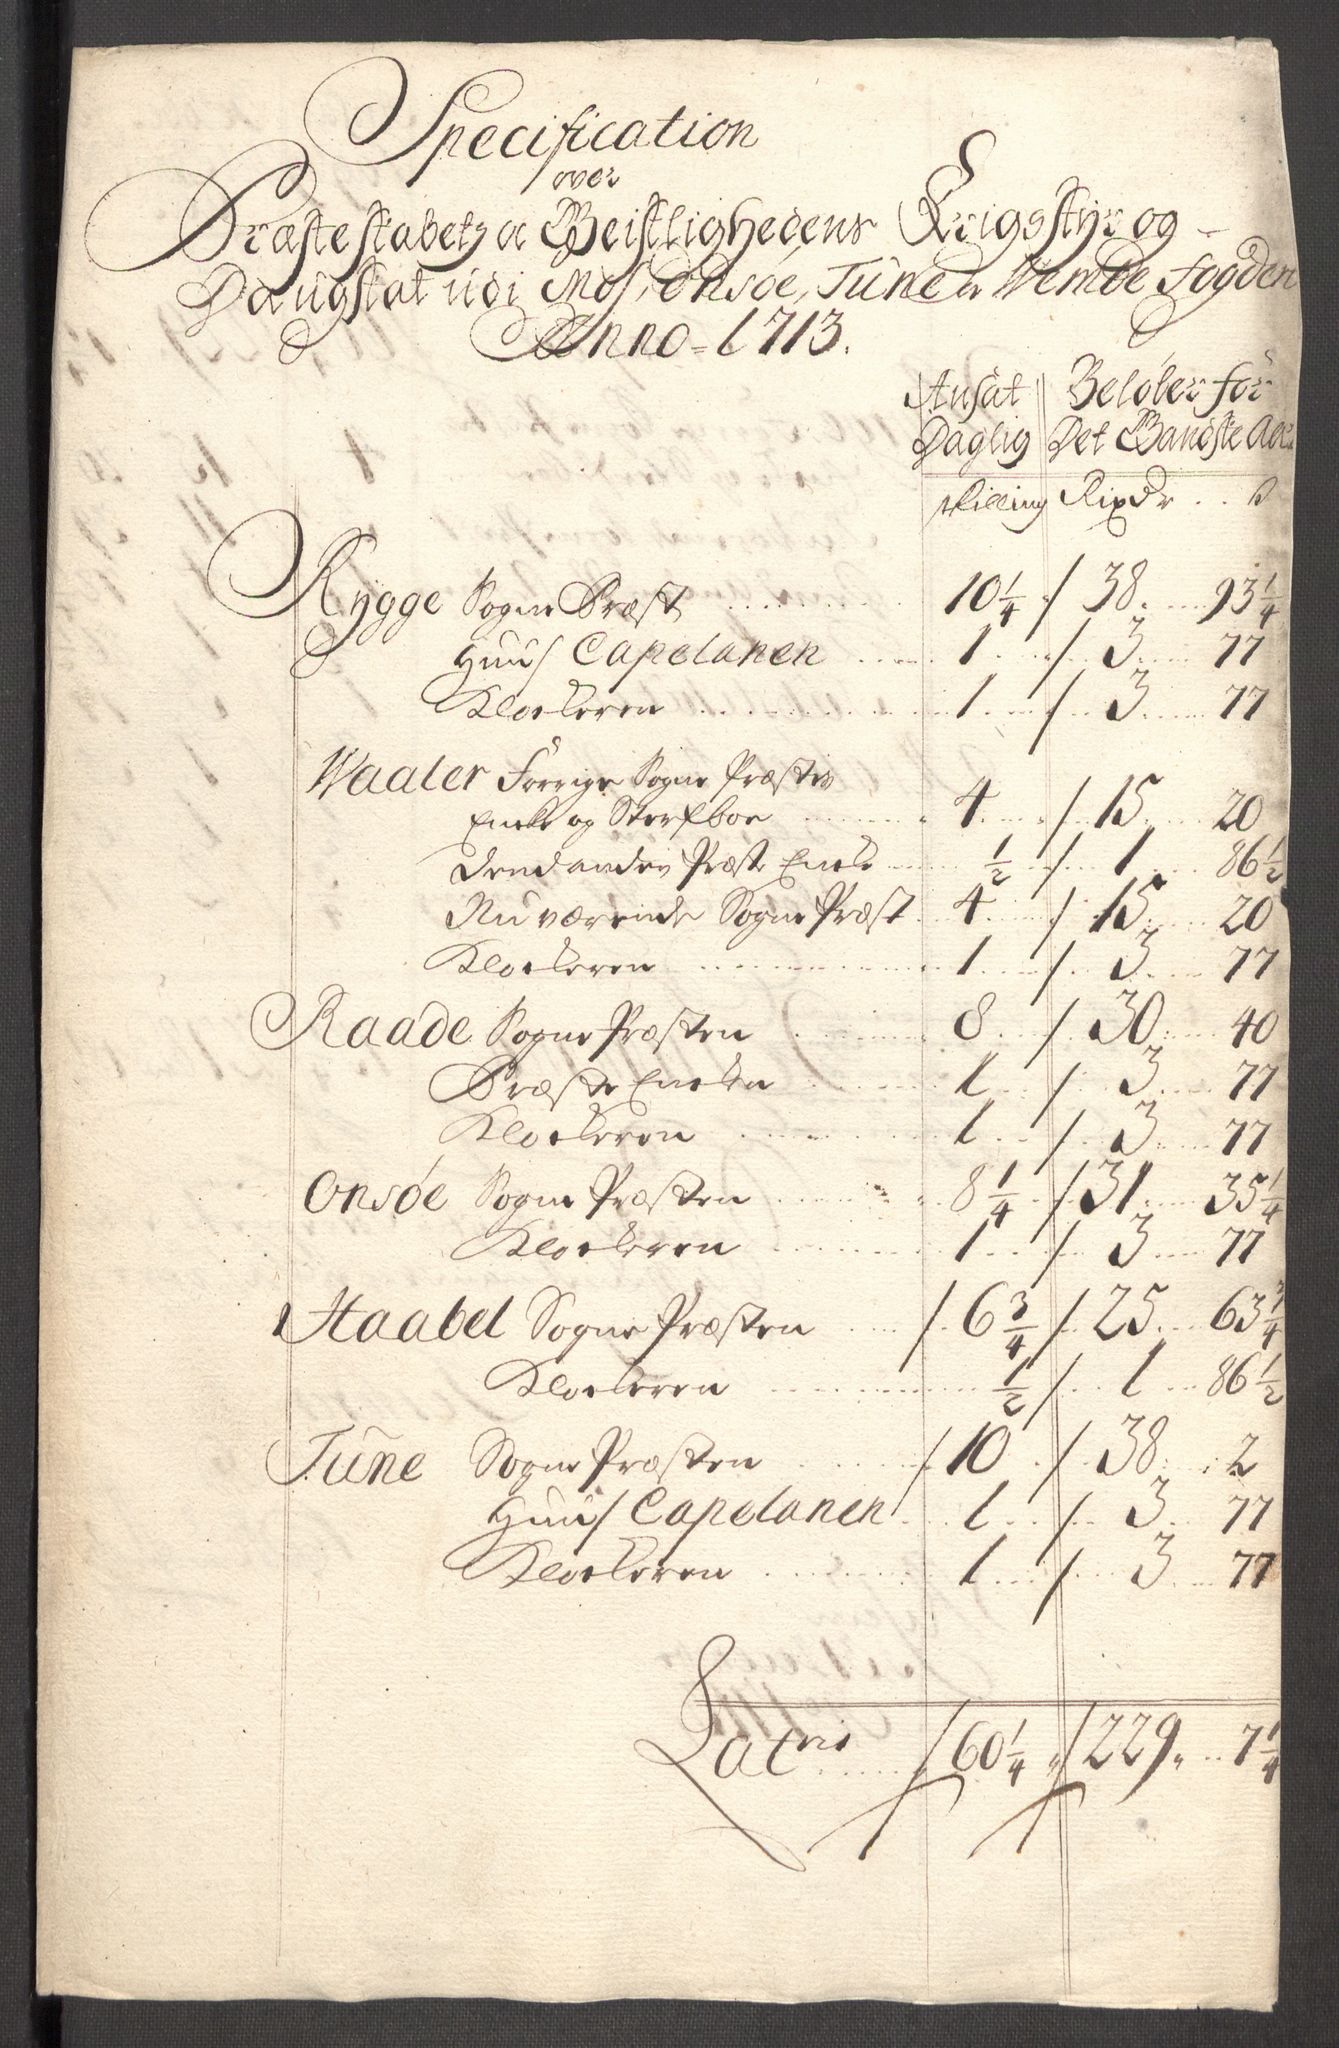 Specification
over
Præsteskabetz oc Geistlighedens Krigsstyr og
Daugskat udi Mos, Onsøe, Tune oc Wemøe Fogderi
Anno 1713.
Ansat Beløber for
Daglig Det Gandske Aar
skilling Rixdr ß
Rygge Sogne Præst 10 1/4 / 38 93 1/4
Huus Capelanen 1 / 3 77
Klockeren 1 / 3 77
Waaler Forrige Sogne Præstes
Encke og Sterfboe 4 / 15 20
Dend anden Præste Encke 1/2 / 1 86 1/2
Nu værende Sogne Præst 4 / 15 20
Klockeren 1 / 3 77
Raade Sogne Præsten 8 / 30 40
Præste Encken 1 / 3 77
Klockeren 1 / 3 77
Onsøe Sogne Præsten 8 1/4 / 31 35 1/4
Klockeren 1 / 3 77
Haabel Sogne Præsten / 6 3/4 / 25 63 3/4
Klockeren 1/2 / 1 86 1/2
Tune Sogne Præsten / 10 / 38 2
Huus Capelanen 1 / 3 77
Klockeren 1 / 3 77
Latris / 60 1/4 / 229 7 1/4